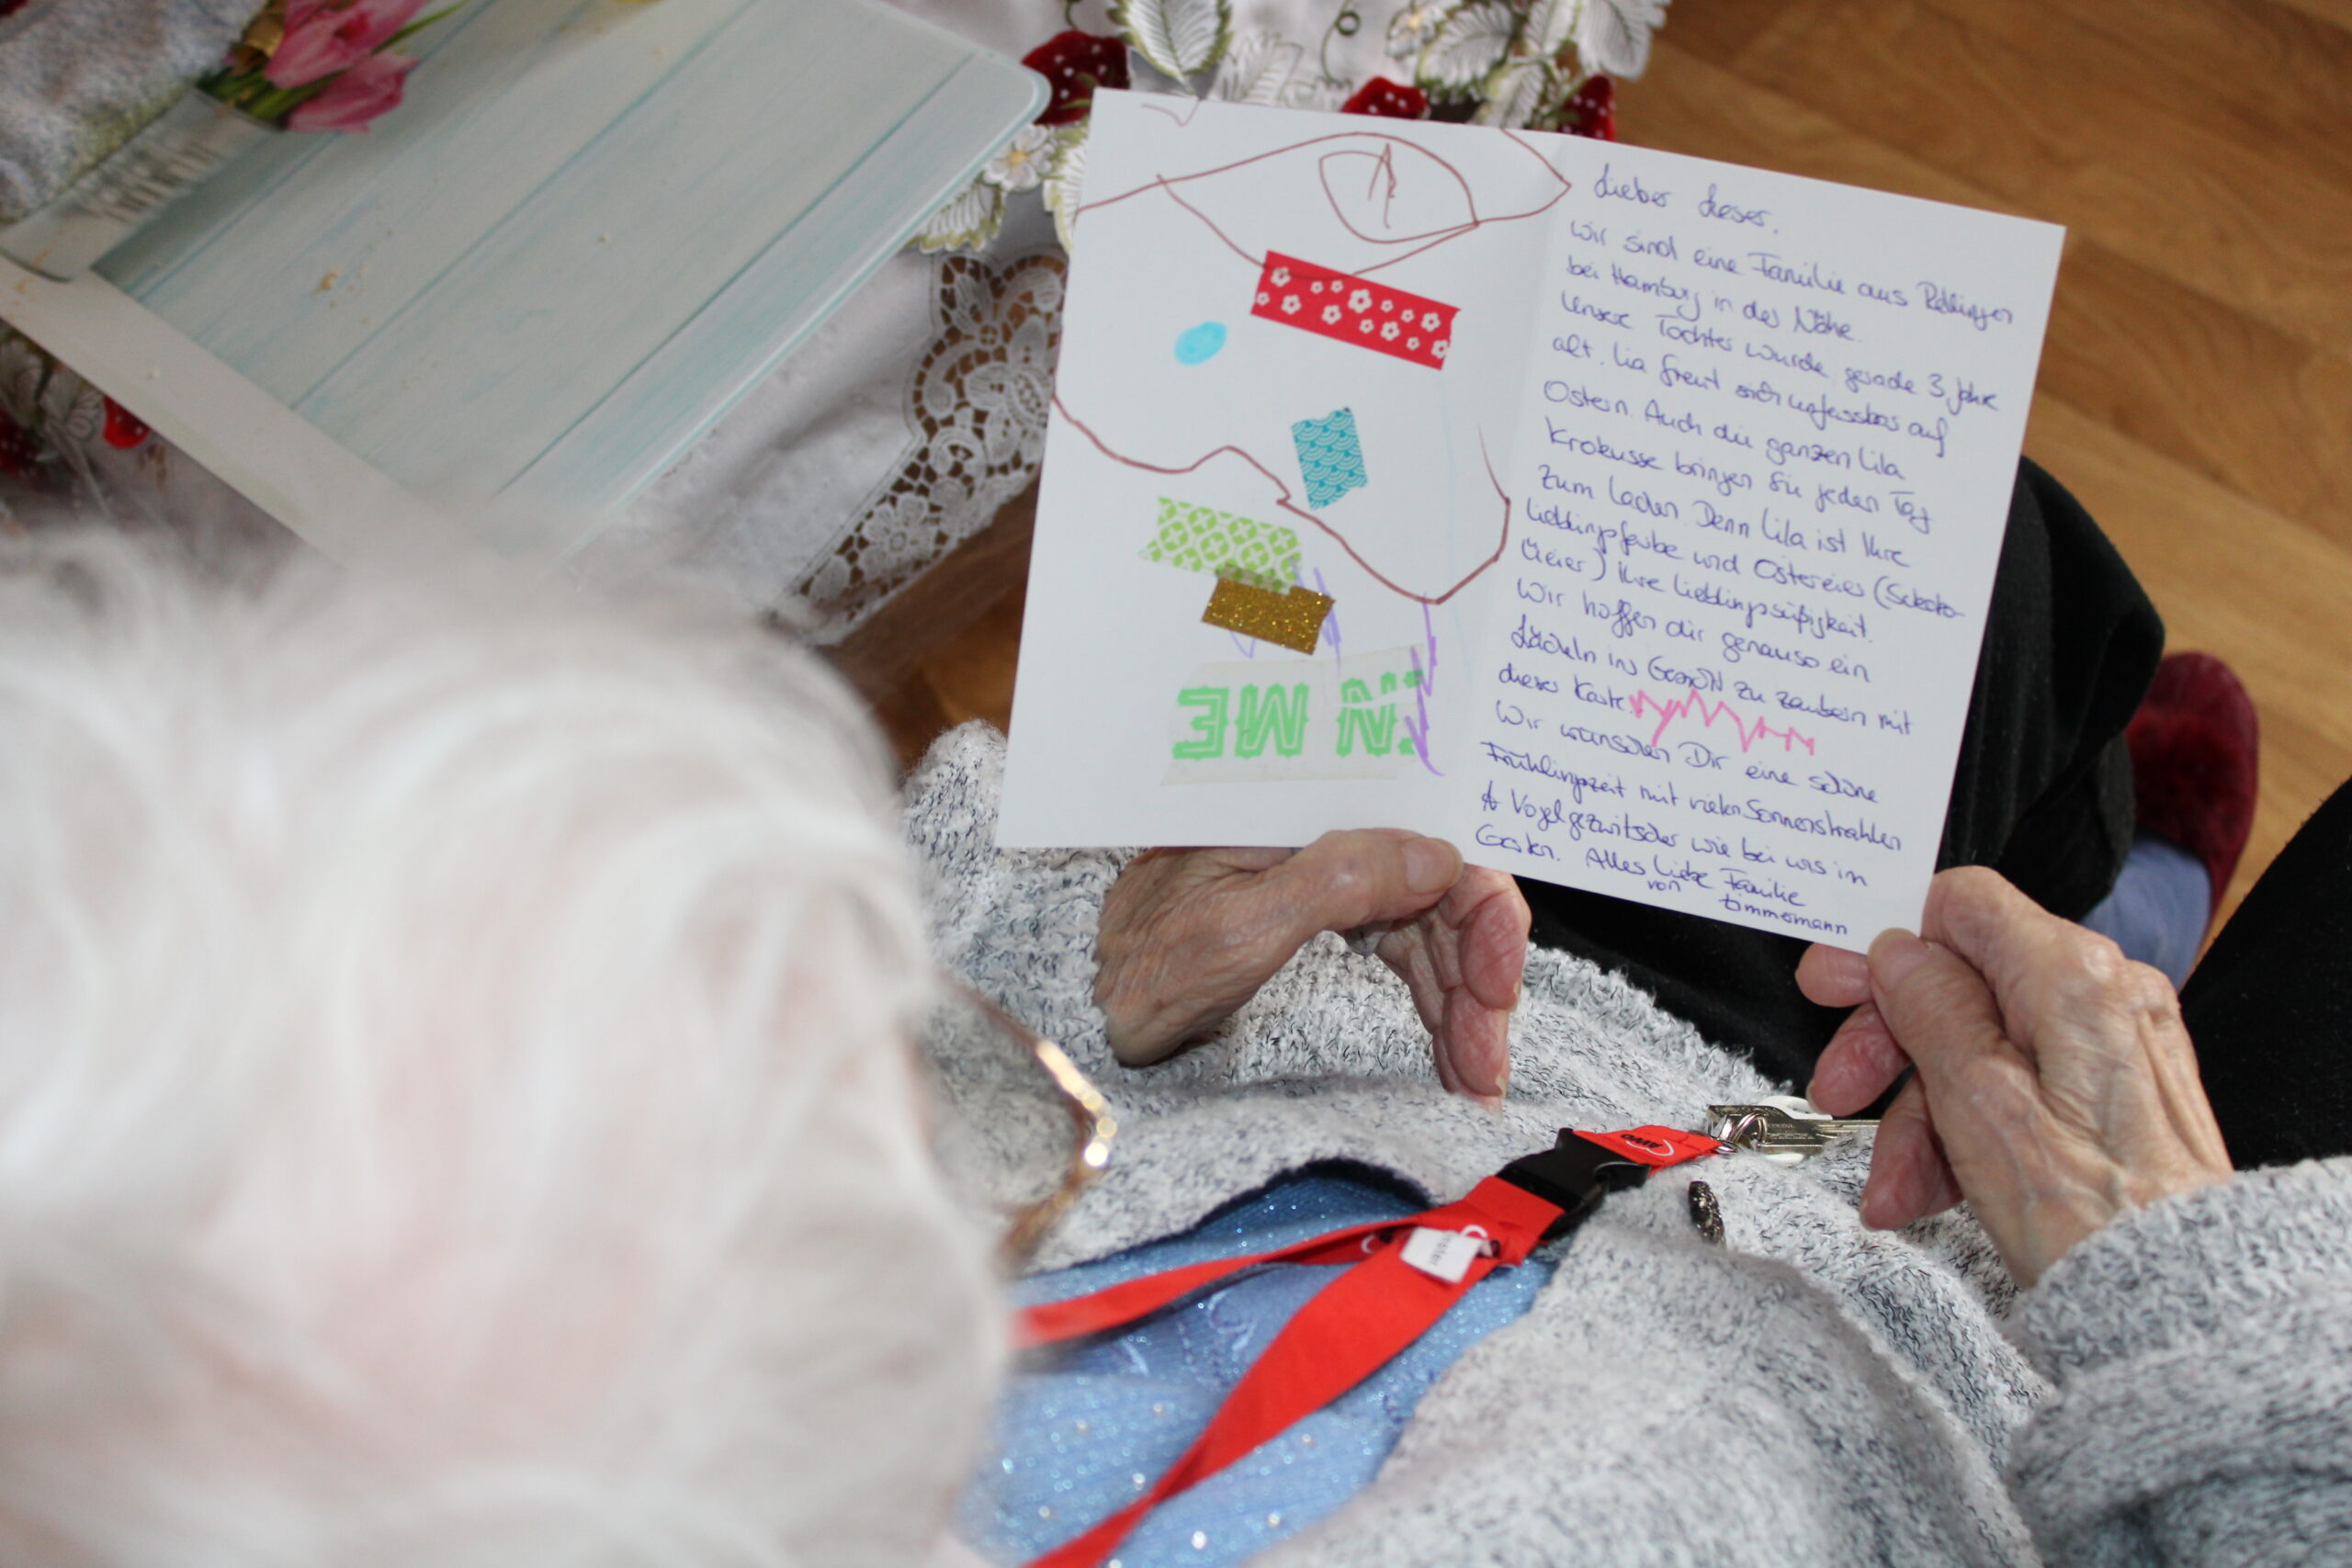 Lieber Leser,
Wir sind eine Familie aus Rellingen
bei Hamburg in der Nähe.
Unsere Tochter wurde gerade 3 Jahre
alt. Lia freut sich unfassbar auf
Ostern. Auch die ganzen lila
Krokusse bringen Sie jeden Tag
zum lachen. Denn Lila ist Ihre
Lieblingsfarbe und Ostereier (Schoko-
Eier) Ihre Lieblingssüßigkeit.
Wir hoffen dir genauso ein
Lächeln ins Gesicht zu zaubern mit
dieser Karte.
Wir wünschen Dir eine schöne
Frühlingszeit mit vielen Sonnenstrahlen
& Vogelgezwitscher wie bei uns im
Garten. Alles Liebe
von Familie
Zimmermann
N ME
AWO